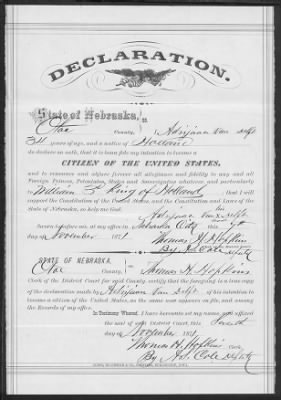 DECLARATION.
State of Nebraska, ss.
Otoe County, Adrijaan Van Delft
34 years of age, and a native of Holland
do declare on oath, that it is bona fide my intention to become a
CITIZEN OF THE UNITED STATES,
and to renounce and abjure forever all allegiance and fidelity to any and all
Foreign Princes, Potentates, States and Sovereignties whatever and particularly
to William 3d King of Holland, that I will
support the Constitution of the United States, and the Constitution and Laws of the
State of Nebraska, so help me God.
his
Adrijaan Van X Delft
Subscribed and sworn to before me at Nebraska City this
day of November 1871 Thomas H Hopkins
By A S Cole Deputy
STATE OF NEBRASKA, ss.
Otoe County, I Thomas H Hopkins
Clerk of the District Court for said County, certify that the foregoing is a true copy
of the declaration made by Adrijaan Van Delft of his intention to
become a citizen of the United States, as the same now appears on file, and among
the Records of my office.
In Testimony Whereof, I have hereunto set my name and affixed
the seal of said District Court, this
day of November 1871
Thomas H Hopkins Clerk.
By A S Cole Deputy